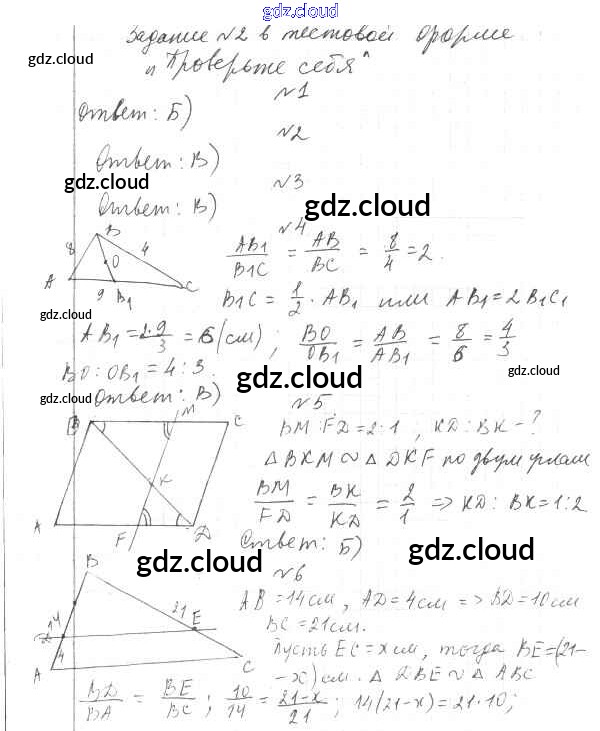 gdz.cloud
Задание №2 в тестовой форме
gdz.cloud
„Проверьте себя"
№1
gdz.cloud
Ответ: Б)
№2
Ответ: В)
№3
gdz.cloud
Ответ: В)
gdz.cloud
№4
B
8
4
O
A
9
B₁
C
AB₁/B₁C = AB/BC = 8/4 = 2.
B₁C = 1/2 · AB₁ или AB₁ = 2B₁C₁
gdz.cloud
AB₁ = 2·9/3 = 6 (см) ; BO/OB₁ = AB/AB₁ = 8/6 = 4/3
gdz.cloud
BO : OB₁ = 4 : 3.
gdz.cloud
gdz.cloud
Ответ: В)
№5
B
M
C
K
A
F
D
BM : FD = 2:1 , KD : BK - ?
△ BKM ∾ △ DKF по двум углам
BM/FD = BK/KD = 2/1 => KD : BK = 1:2
Ответ: Б)
gdz.cloud
gdz.cloud
№6
B
14
21
E
4
A
C
AB = 14 см , AD = 4 см => BD = 10 см
BC = 21 см.
gdz.cloud
Пусть EC = x см, тогда BE = (21-
- x) см. △ DBE ∾ △ ABC
BD/BA = BE/BC ; 10/14 = 21-x/21 ; 14(21-x) = 21·10;